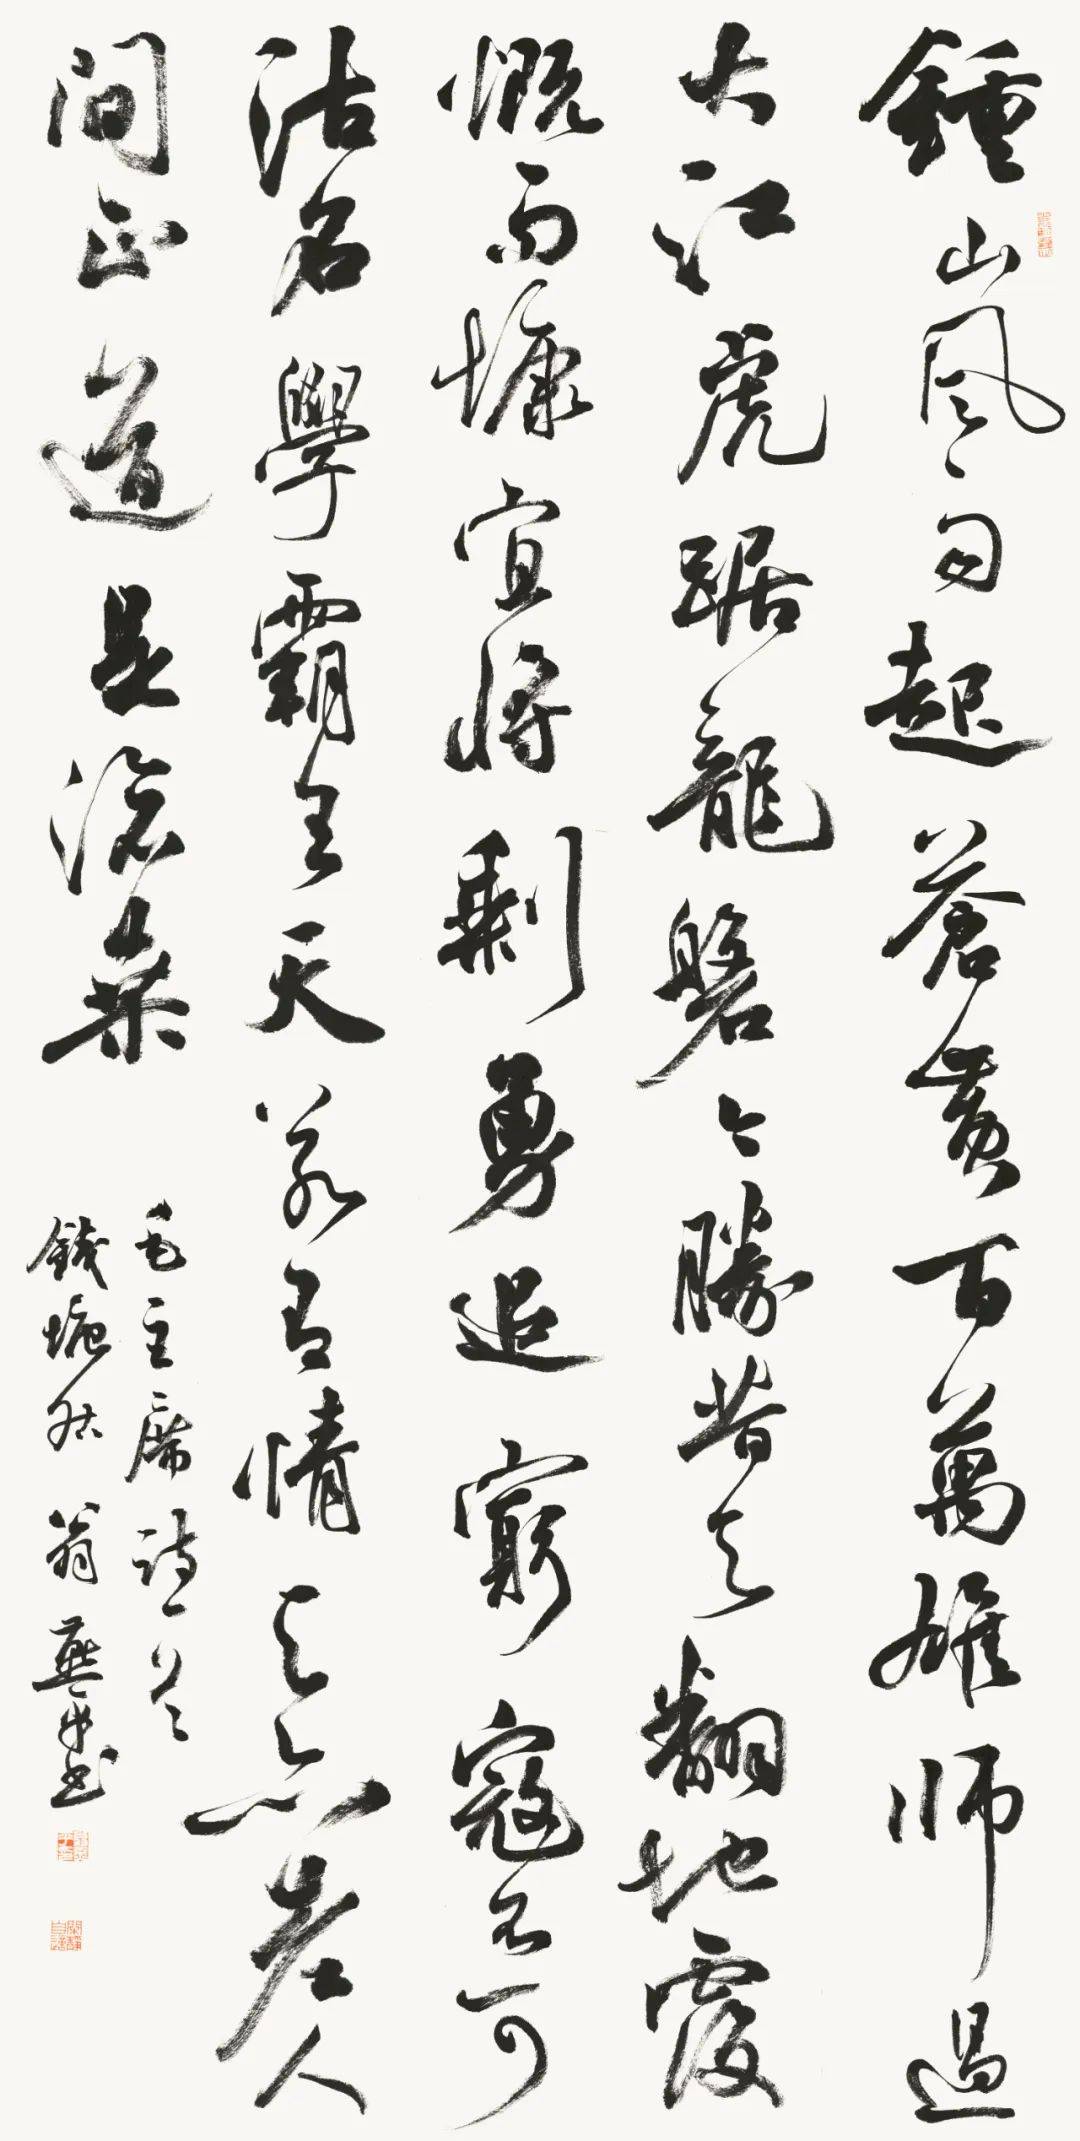 鍾山風雨起蒼黃百萬雄師過
大江虎踞龍磐今勝昔天翻地覆
慨而慷宜將剩勇追窮寇不可
沽名學霸王天若有情天亦老人
間正道是滄桑
毛主席詩一首
錢塘 翁燕 書